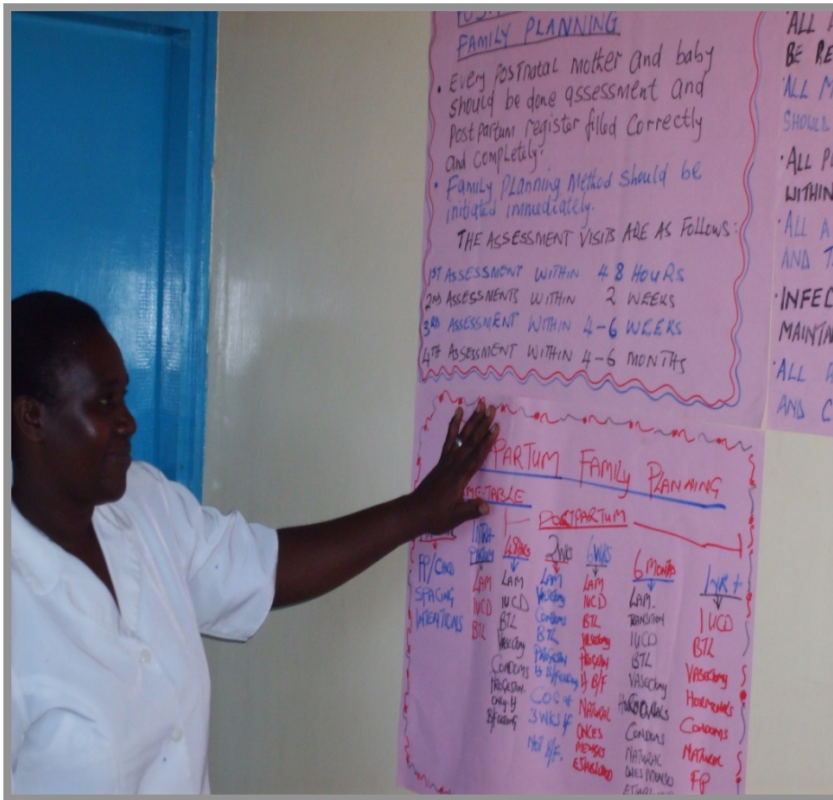 FAMILY PLANNING
• Every Postnatal Mother and baby
should be done assessment and
Postpartum register filled Correctly
and completely.
• Family Planning Method should be
initiated immediately.
THE ASSESSMENT VISITS ARE AS FOLLOWS:
1ST ASSESSMENT WITHIN 48 HOURS
2ND ASSESSMENTS WITHIN 2 WEEKS
3RD ASSESSMENT WITHIN 4-6 WEEKS
4TH ASSESSMENT WITHIN 4-6 MONTHS
ALL
BE RE
ALL M
SHOULD
• ALL P
WITHIN
• ALL A
AND T
• INFEC
MAINTA
• ALL
AND C
PARTUM FAMILY PLANNING
POSTPARTUM
FP/CHILD
SPACING
INTENTIONS
INTRA-
PARTUM
LAM
IUCD
BTL
48HRS
LAM
IUCD
BTL
Vasectomy
CONDOMS
PROGESTIN
ONLY IF
B/FEEDING
2WKS
LAM
Vasectomy
Condoms
BTL
PROGESTIN
IF B/FEEDING
COC if
3WKS if
NOT B/F.
6WKS
LAM
IUCD
BTL
Vasectomy
Progestin
IF B/F
NATURAL
ONCES
MENSES
ESTABLISHED
6 MONTHS
LAM-
TRANSITION
IUCD
BTL
VASECTOMY
HORMONALS
CONDOMS
NATURAL
ONCES MENSES
1YR +
IUCD
BTL
VASECTOMY
HORMONALS
CONDOMS
NATURAL
FP